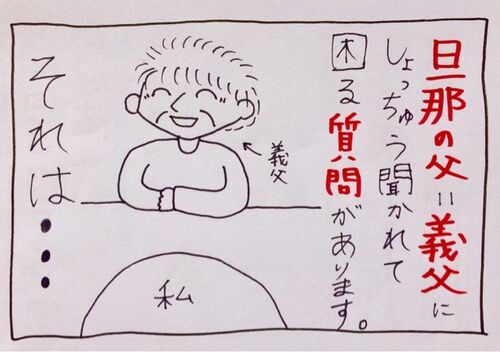 旦那の父=義父に
しょっちゅう聞かれて
困る質問があります。
義父
それは・・・
私